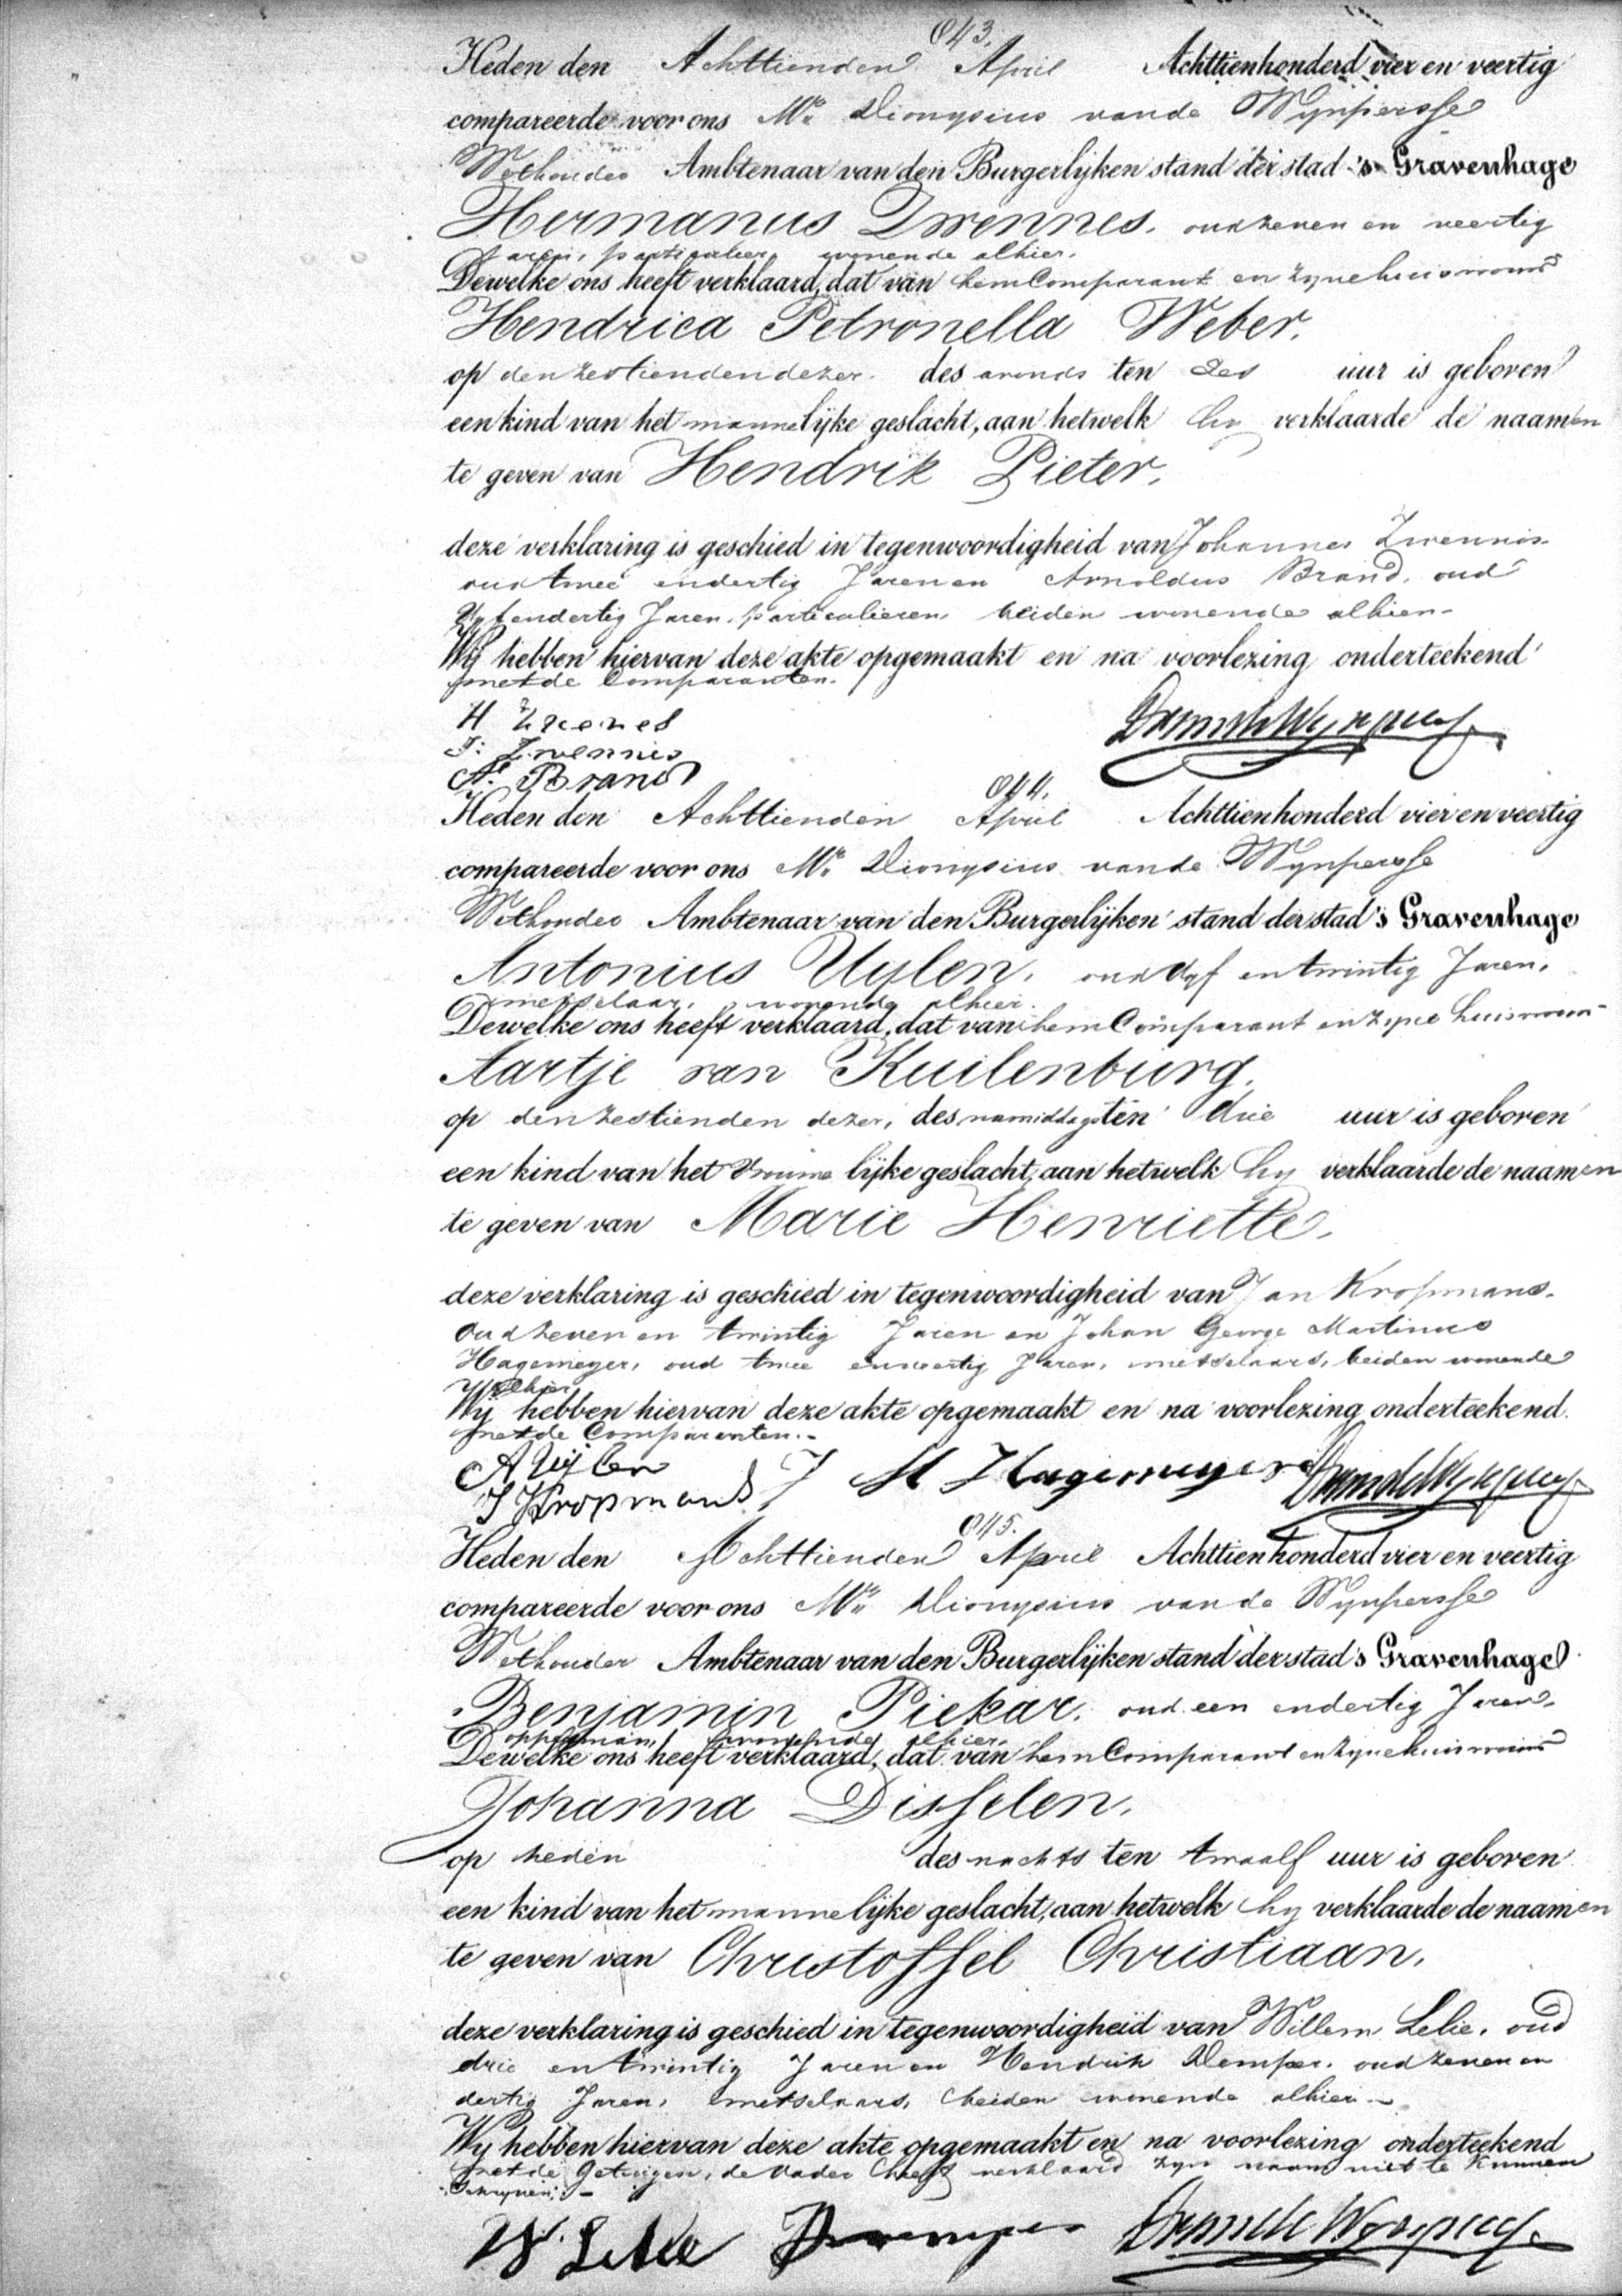 643.
Heden den Achttienden April Achttienhonderd vier en veertig
compareerde voor ons Mr. Dionysius vande Wynpersse
Wethouder Ambtenaar van den Burgerlijken stand der stad 's Gravenhage
Hermanus Zwennes, oud zeven en veertig
Jaren, particulier, wonende alhier.
Dewelke ons heeft verklaard, dat van hem Comparant en zyne huisvrouw
Hendrica Petronella Weber.
op den zestienden dezer des avonds ten zes uur is geboren
een kind van het mannelijke geslacht, aan hetwelk hy verklaarde de naamen
te geven van Hendrik Pieter.
deze verklaring is geschied in tegenwoordigheid van Johannes Zwennis
oud twee en dertig Jaren en Arnoldus Brand, oud
vyf en dertig Jaren, particulieren, beiden wonende alhier.
Wij hebben hiervan deze akte opgemaakt en na voorlezing onderteekend
met de Comparanten.
H Zwenes
J: Zwennis
A. Brand
644.
Heden den Achttienden April Achttienhonderd vier en veertig
compareerde voor ons Mr. Dionysius vande Wynpersse
Wethouder Ambtenaar van den Burgerlijken stand der stad 's Gravenhage
Antonius Uylen, oud vyf en twintig Jaren,
metselaar, wonende alhier.
Dewelke ons heeft verklaard, dat van hem Comparant en zyne huisvrouw
Aartje van Kuilenburg.
op den zestienden dezer, des namiddags ten drie uur is geboren
een kind van het vrouwelijke geslacht, aan hetwelk hy verklaarde de naamen
te geven van Marie Henriette.
deze verklaring is geschied in tegenwoordigheid van Jan Kropmans.
oud zeven en twintig Jaren en Johan George Martinus
Hagemeyer, oud twee en veertig Jaren, metselaars, beiden wonende
alhier
Wij hebben hiervan deze akte opgemaakt en na voorlezing onderteekend
met de Comparanten.
A Uijlen
J Kropmans J M Hagemeyer
645.
Heden den Achttienden April Achttienhonderd vier en veertig
compareerde voor ons Mr. Dionysius vande Wynpersse
Wethouder Ambtenaar van den Burgerlijken stand der stad 's Gravenhage
Benjamin Piekar, oud een en dertig Jaren,
opperman, wonende alhier.
Dewelke ons heeft verklaard, dat van hem Comparant en zyne huisvrouw
Johanna Disselen.
op heden des nachts ten twaalf uur is geboren
een kind van het mannelijke geslacht, aan hetwelk hy verklaarde de naamen
te geven van Christoffel Christiaan.
deze verklaring is geschied in tegenwoordigheid van Willem Lelie, oud
drie en twintig Jaren en Hendrik Demper, oud zeven en
dertig Jaren, metselaars, beiden wonende alhier.
Wy hebben hiervan deze akte opgemaakt en na voorlezing onderteekend
met de Getuigen, de Vader heeft verklaard zyn naam niet te kunnen
schryven.
W. Lelie